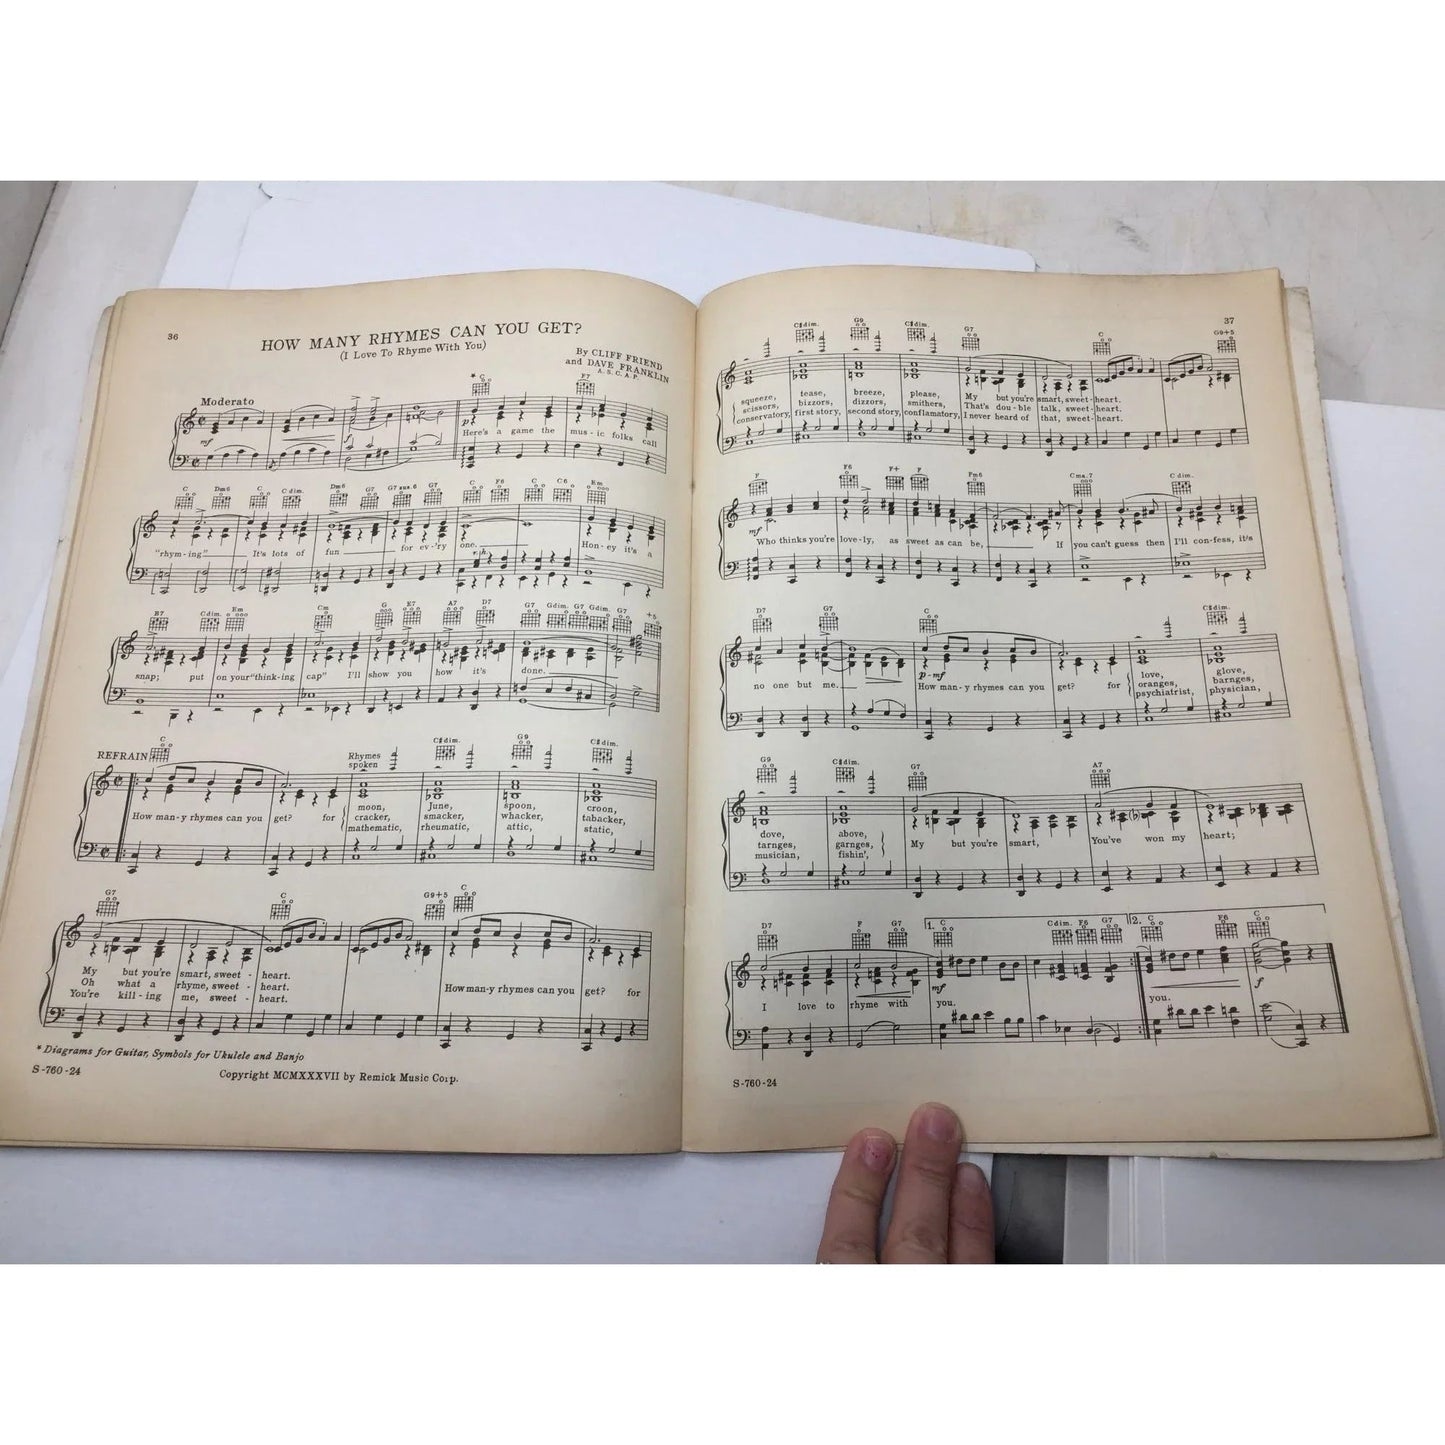 36
HOW MANY RHYMES CAN YOU GET?
(I Love To Rhyme With You)
By CLIFF FRIEND
and DAVE FRANKLIN
A. S. C. A. P.
* C F7
Moderato
mf f p
Here's a game the mus - ic folks call
C Dm6 C C dim. Dm6 G7 G7 sus.6 G7 C F6 C C6 Em
"rhym - ing" It's lots of fun for ev-'ry one. Hon - ey it's a
r.h.
B7 C dim. Em Cm G E7 A7 D7 G7 G dim. G7 G dim. G7 +5
snap; put on your "think - ing cap" I'll show you how it's done.
REFRAIN C Rhymes spoken C♯dim. G9 C♯dim.
How man-y rhymes can you get? for moon, June, spoon, croon,
cracker, smacker, whacker, tabacker,
mathematic, rheumatic, attic, static,
G7 C G9+5 C
My but you're smart, sweet - heart.
Oh what a rhyme, sweet - heart. How man-y rhymes can you get? for
You're kill - ing me, sweet - heart.
* Diagrams for Guitar, Symbols for Ukulele and Banjo
S -760 -24
Copyright MCMXXXVII by Remick Music Corp.
37
C♯dim. G9 C♯dim. G7 C G9+5
squeeze, tease, breeze, please, My but you're smart, sweet - heart.
scissors, bizzors, dizzors, smithers, That's dou - ble talk, sweet - heart.
conservatory, first story, second story, conflamatory, I never heard of that, sweet - heart.
F F6 F+ F Fm6 Cma.7 C dim.
mf
Who thinks you're love - ly, as sweet as can be, If you can't guess then I'll con - fess, it's
D7 G7 C C♯dim.
p - mf
no one but me. How man-y rhymes can you get? for love, glove,
oranges, barnges,
psychiatrist, physician,
G9 C♯dim. G7 A7
dove, above,
tarnges, garnges, My but you're smart, You've won my heart;
musician, fishin',
D7 F G7 1. C C dim. F6 G7 2. C F6 C
I love to rhyme with you. you.
mf f
S -760 -24